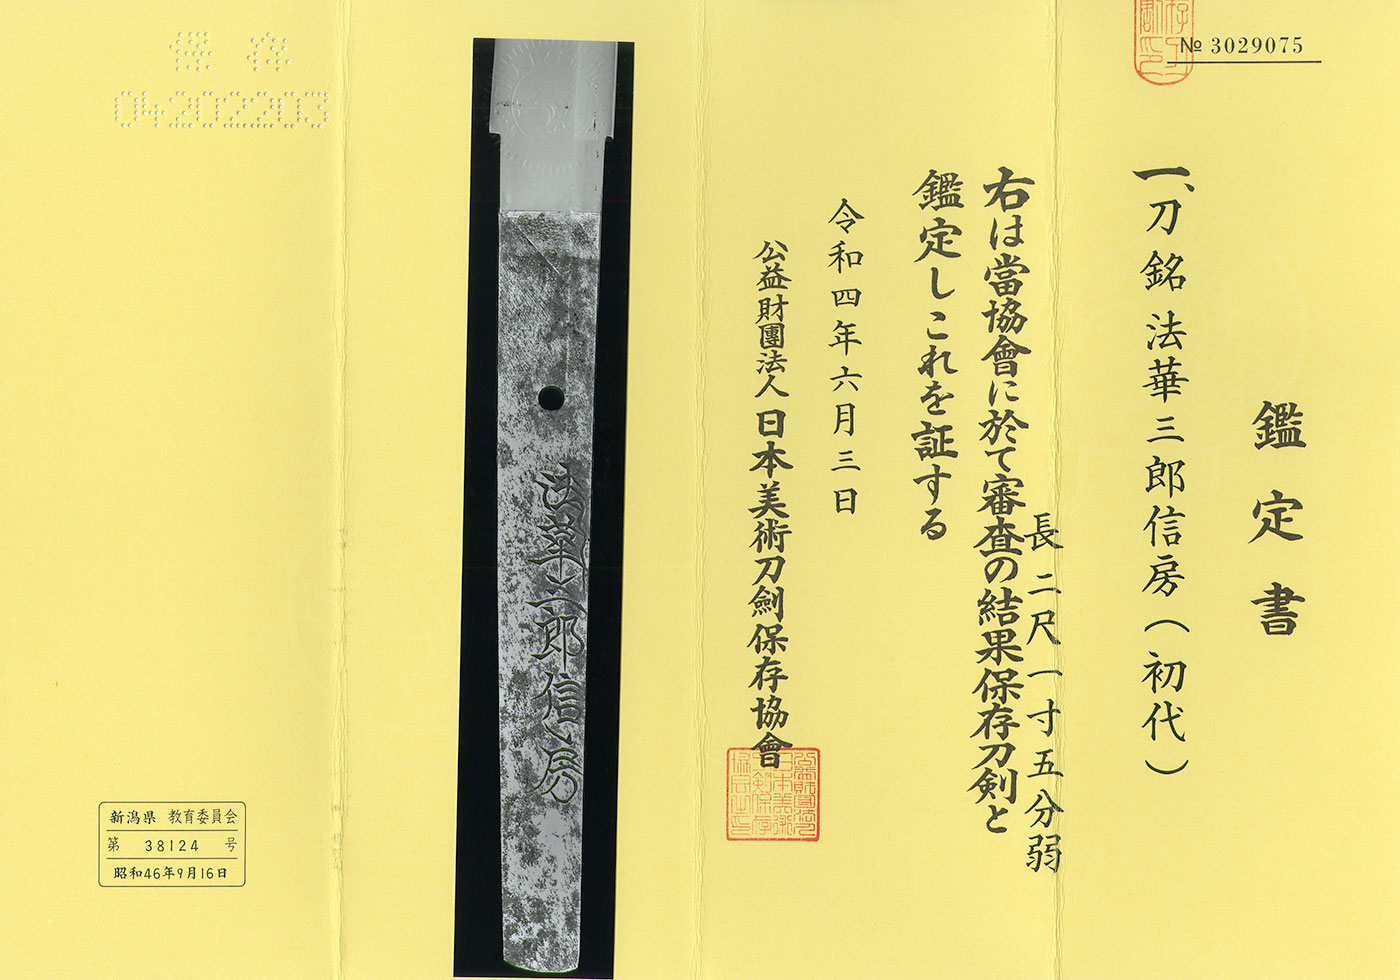 № 3029075
鑑定書
一、刀 銘 法華三郎信房(初代)
長二尺一寸五分弱
右は當協會に於て審査の結果保存刀剣と
鑑定しこれを証する
令和四年六月三日
公益財團法人日本美術刀劍保存協會
法華三郎信房
保存
04202203
新潟県 教育委員会
第 38124 号
昭和46年9月16日